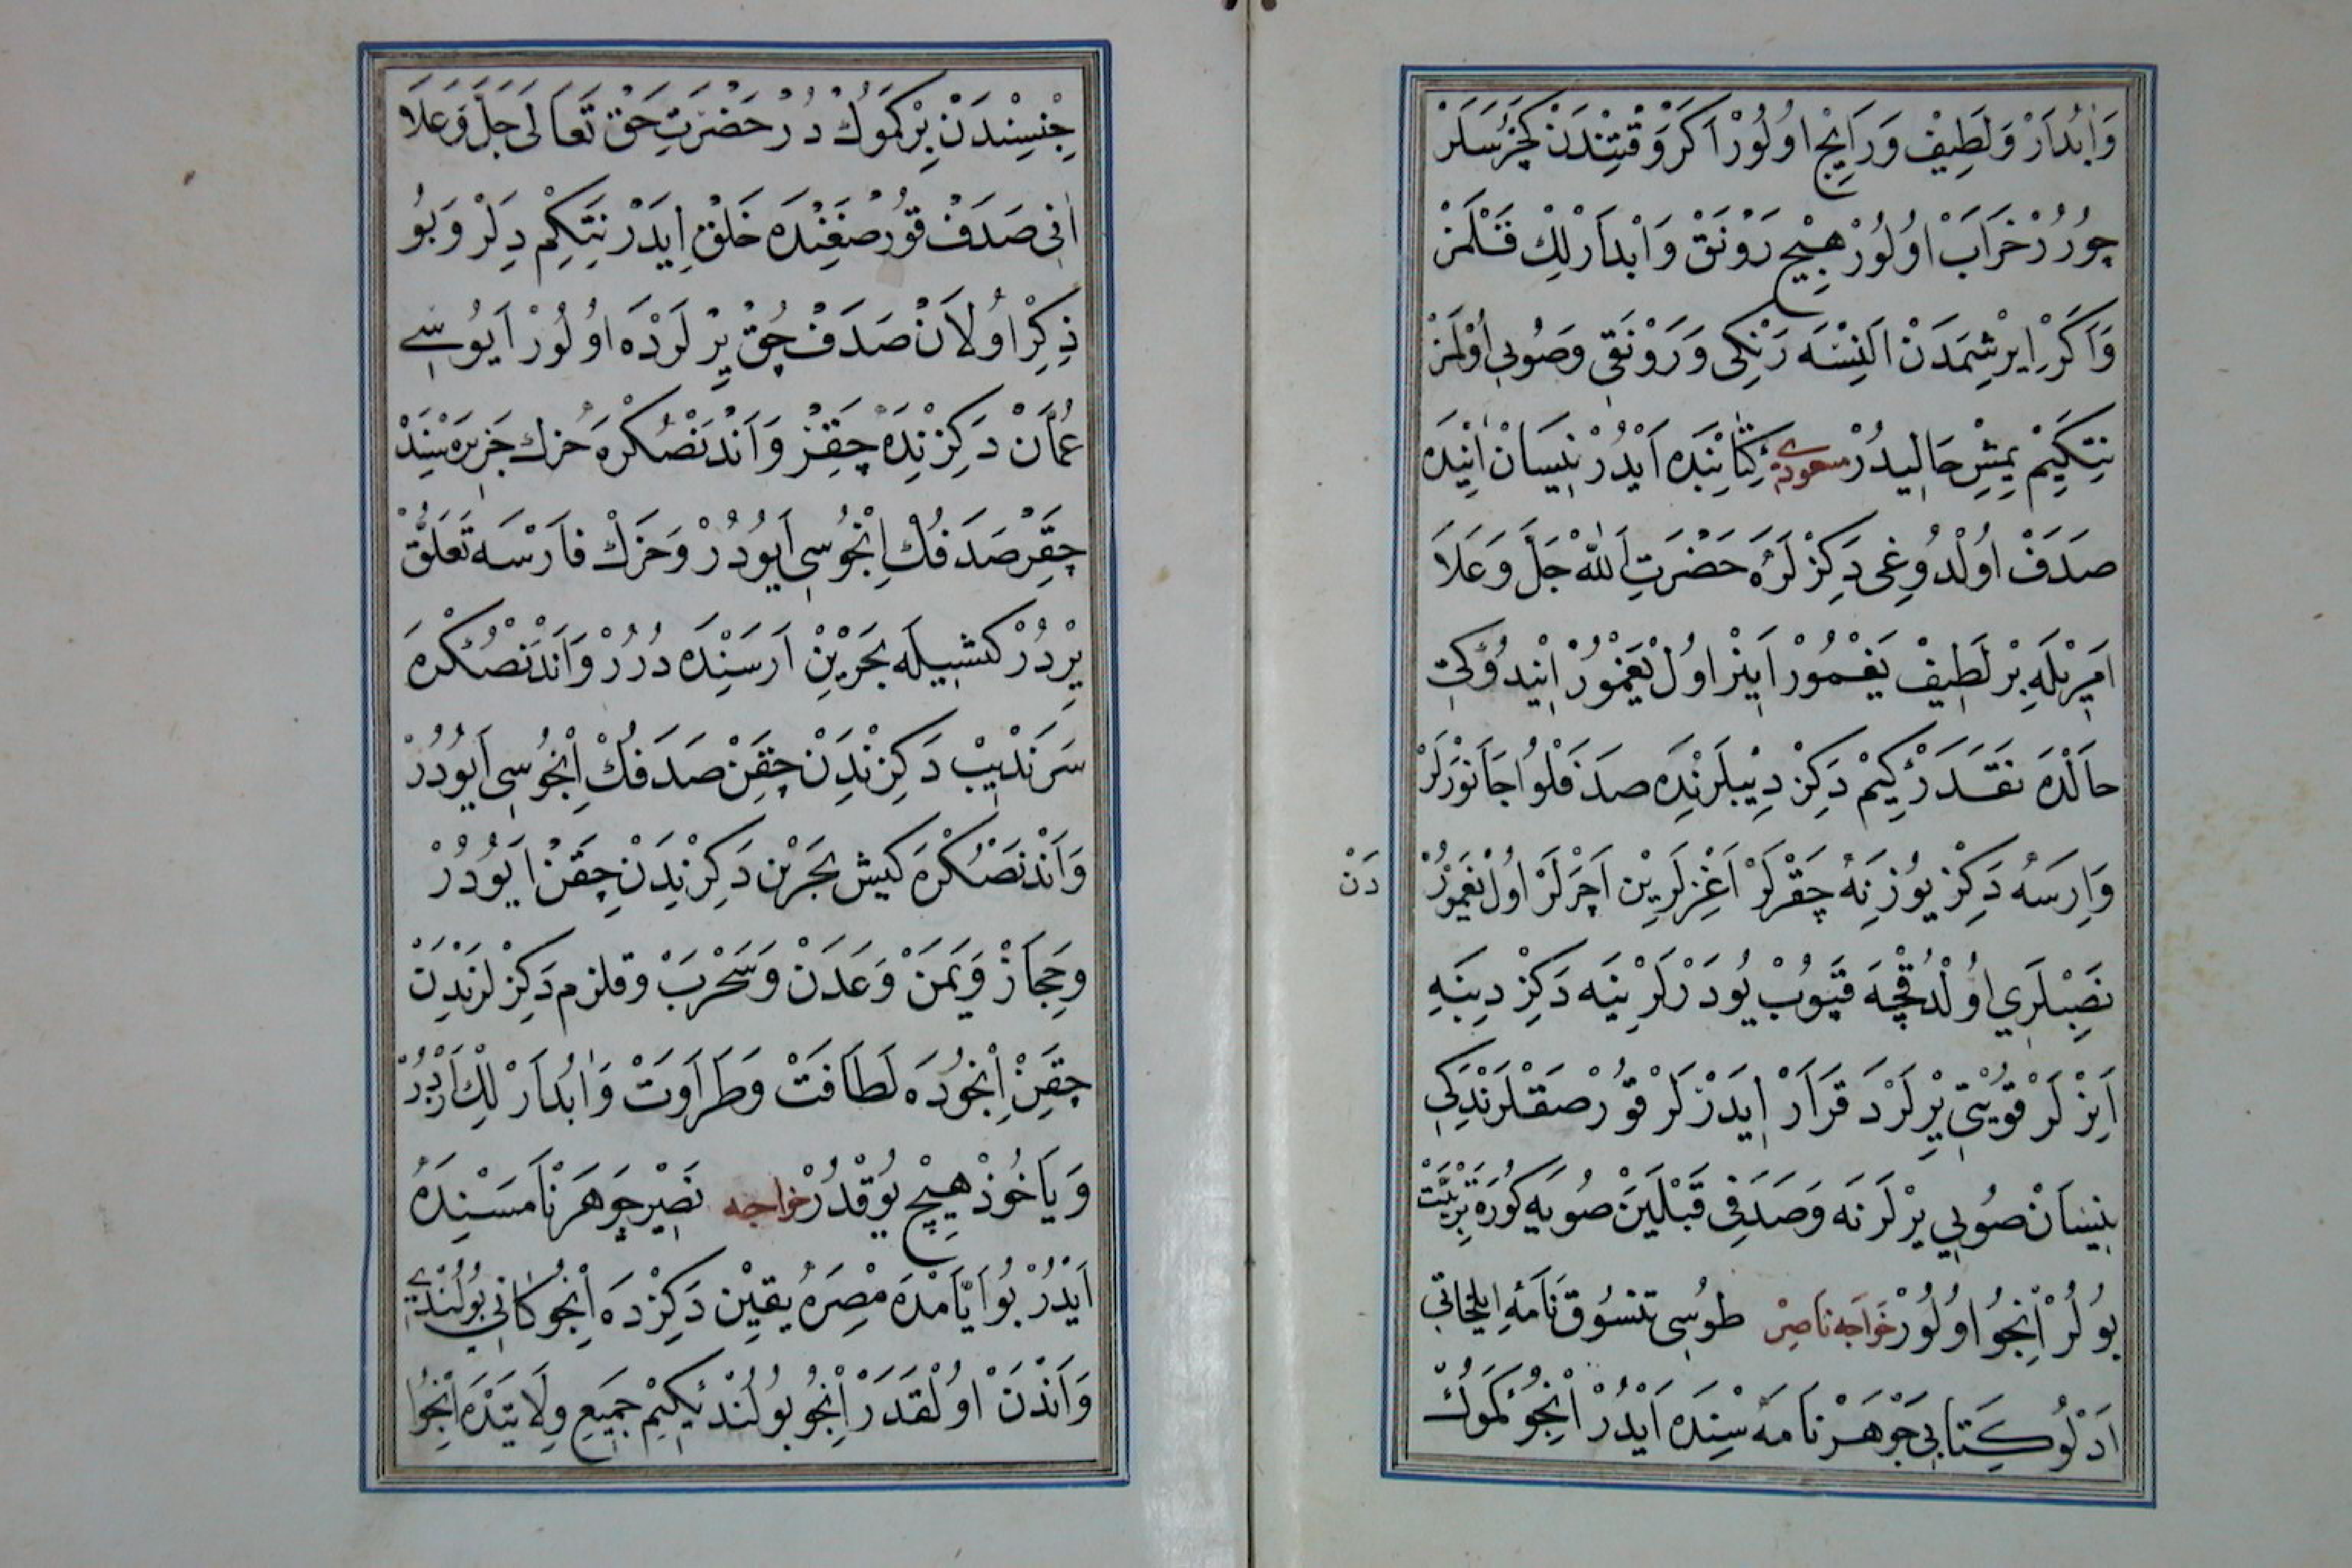 وَابْدَارْ وَلَطِيفْ وَرَايِجْ اوُلُورْ اَكَرْ وَقْتِنْدَنْ كَجُرْسَلَرْ
چُورُرْ خَرَابْ اوُلُورْ هِيچْ رَوْنَقْ وَابْدَارْلِكْ قَلْمَزْ
وَاَكَرْ اِيرِشْمَدَنْ اَلِنْسَه رَنْكِى وَرَوْنَقِى وَصُوىِ اوُلْمَزْ
نِتَكِيمْ يِمِشْ حَالِيدُرْ مسعودى كِتَابِنْدَه اَيْدُرْ نِيسَانْ اَيِنْدَه
صَدَفْ اوُلْدُوغِى دَكِزْلَرَه حَضْرَتِ اَللّٰهْ جَلَّ وَعَلَا
اَمْرِيلَه بِرْ لَطِيفْ يَغْمُورْ اِينَرْ اوُلْ يَغْمُورْ اِنْدُوكِى
حَالْدَه نَقَدَرْ كِيمْ دَكِزْ دِيبْلَرِنْدَه صَدَفْلُوا جَانَوَرْلَرْ
وَارِسَه دَكِزْ يُوزِنَه چِقَرْلَرْ اَغِزْلَرِينْ اَچَرْلَرْ اوُلْ يَغْمُورْ
دَنْ
نَصِبْلَرِي اوُلْدُقْچَه قَيوُبْ يُودَرْلَرْ يِنَه دَكِزْ دِيبِنَه
اِينَرْلَرْ قَوِيْتِى يِرْلَرْدَ قَرَارْ اِيدَرْلَرْ قوُرْصَقْلَرِنْدَكِى
نِيسَانْ صُوىِ يِرْلَرِنَه وَصَدَفِى قَبْلَيَنْ صُويَه كُورَه تَرْبِيَتْ
بُولُرْ اِنْجُو اوُلُورْ خَوَاجَه نَاصِرْ طوُسِى تنسُوقْ نَامَهِ ايلخانى
اَدْلُو كِتَابِى جَوْهَرْ نَامَه سِنْدَه اَيْدُرْ اِنْجُو كَمُوكْ
جِنْسِنْدَنْ بِرْ كَمُوكْ دُرْ حَضْرَتِ حَقْ تَعَالَى جَلَّ وَعَلَا
اَنِى صَدَفْ قوُرْصَغِنْدَه خَلْقْ اِيدَرْ نِتَكِمْ دِلَرْ وَبُو
ذِكِرْ اوُلَانْ صَدَفْ چُقْ يِرْلَرْدَه اوُلُورْ اَيُوسِى
عُمَّانْ دَكِزِنْدَه چِقَرْ وَاَنْدَنْصُكْرَه خرك جَزِيرَه سِنْدَ
چِقَرْ صَدَفُكْ اِنْجُوسِى اَيُودُرْ وَخَرَكْ فَارْسَه تَعَلُّقْ
يِرْدُرْ كشيله بَحْرَيْنِ اَرَسِنْدَه دُرُرْ وَاَنْدَنْصُكْرَه
سَرَنْدِيبْ دَكِزِنْدِنْ چِقَنْ صَدَفُكْ اِنْجُوسِى اَيُودُرْ
وَاَنْدَنْصُكْرَه كيش بَحْرَيْن دَكِزِنْدَنْ چِقَنْ اَيُودُرْ
وحِجَازْ وَيَمَنْ وَعَدَنْ وَسَحْرَبْ وقلزم دَكِزْلَرِنْدِنْ
چِقَنْ اِنْجُودَه لَطَافَتْ وَطَرَاوَتْ وَابْدَارْلِكْ اَزْدُرْ
وَيَاخُوذْ هِيچْ يُوقْدُرْ خواجه نَصِيرْ جَوْهَرْنَامَسِنْدَه
اَيْدُرْ بُو اَيَّامْدَه مِصْرَه يَقِينْ دَكِزْدَه اِنْجُو كَانِى بُولُنْدِى
وَاَنْدَنْ اوُلْقَدَرْ اِنْجُو بُولُنْدِكِيمْ جَمِيعِ وِلَايَتْدَه اِنْجُوا